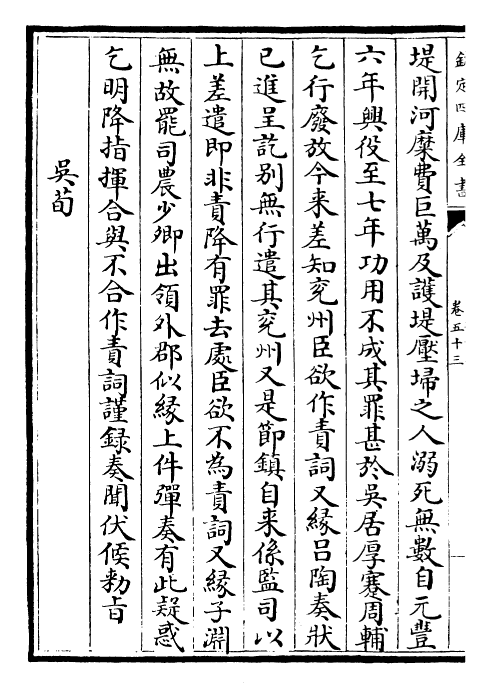 欽定四庫全書
卷五十三
堤開河糜費巨萬及護堤壓埽之人溺死無數自元豐
六年興役至七年功用不成其罪甚於吳居厚蹇周輔
乞行廢放今来差知兖州臣欲作責詞又緣吕陶奏狀
已進呈訖别無行遣其兖州又是節鎮自来係監司以
上差遣即非責降有罪去處臣欲不為責詞又緣子淵
無故罷司農少卿出領外郡似緣上件彈奏有此疑惑
乞明降指揮合與不合作責詞謹録奏聞伏候勅旨
吳荀